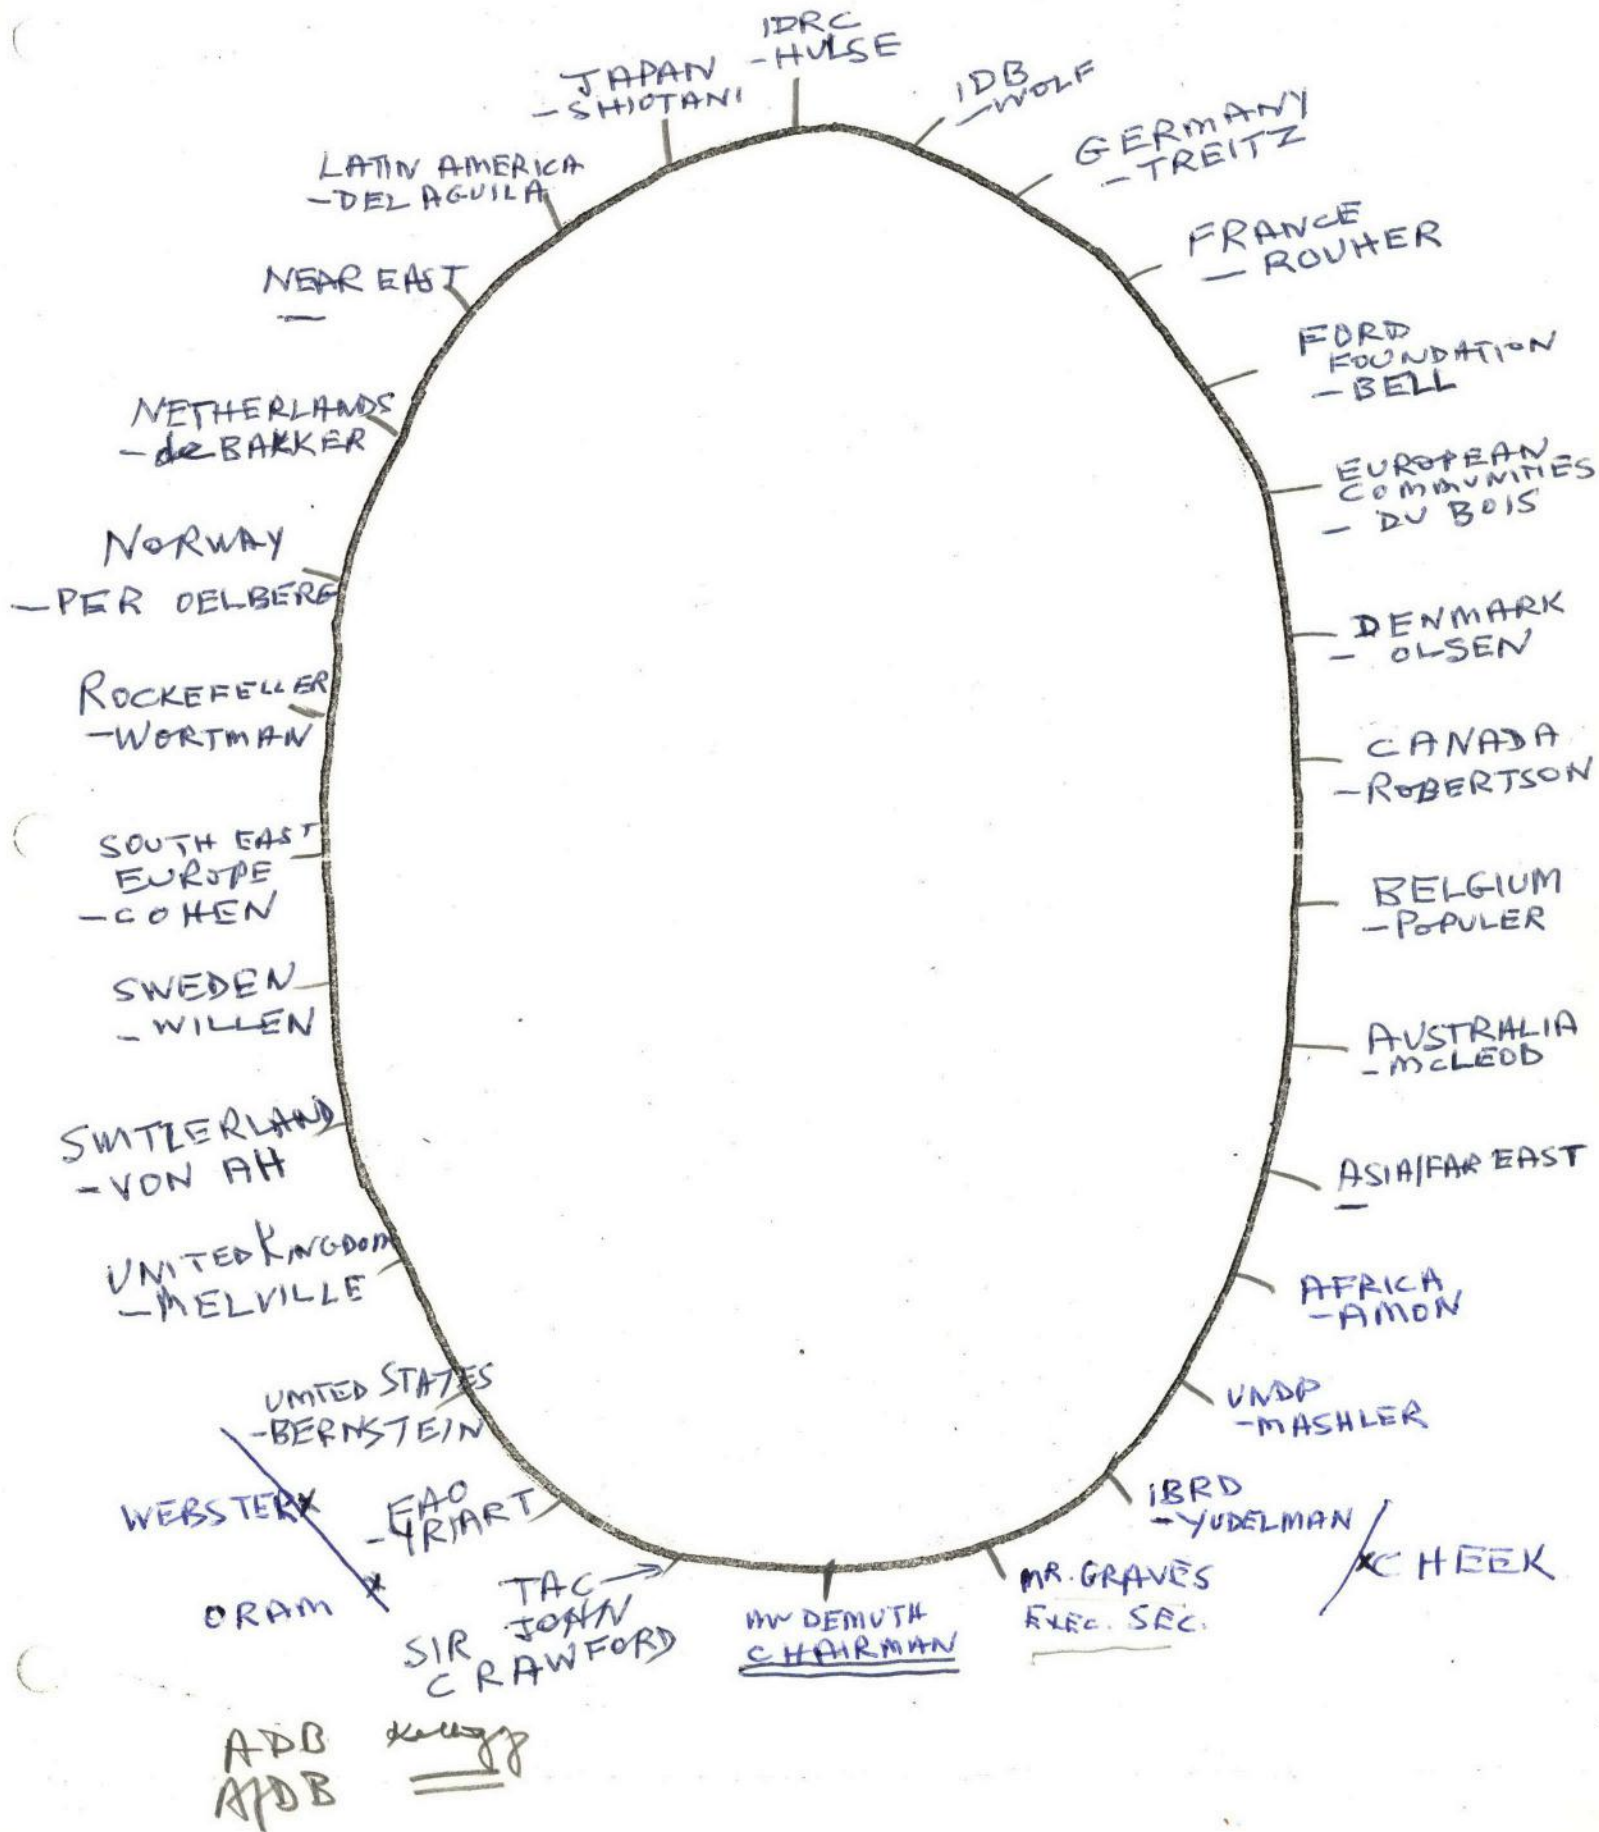 IDRC
-HULSE
IDB
-WOLF
GERMANY
- TREITZ
FRANCE
- ROUHER
FORD
FOUNDATION
- BELL
EUROPEAN
COMMUNITIES
- DU BOIS
DENMARK
- OLSEN
CANADA
-ROBERTSON
BELGIUM
-POPULER
AUSTRALIA
-MCLEOD
ASIA/FAR EAST
-
AFRICA
-AMON
UNDP
-MASHLER
IBRD
-YUDELMAN
XCHEEK
MR. GRAVES
EXEC. SEC.
DEMUTH
CHAIRMAN
TAC
SIR JOHN
CRAWFORD
FAO
-YRIART
WEBSTERX
ORAM X
UNITED STATES
-BERNSTEIN
UNITED KINGDOM
-MELVILLE
SWITZERLAND
-VON AH
SWEDEN
- WILLEN
SOUTH EAST
EUROPE
-COHEN
ROCKEFELLER
-WORTMAN
NORWAY
-PER OELBERG
NETHERLANDS
-de BAKKER
NEAR EAST
-
LATIN AMERICA
-DEL AGUILA
JAPAN
-SHIOTANI
ADB
AfDB
Kellogg